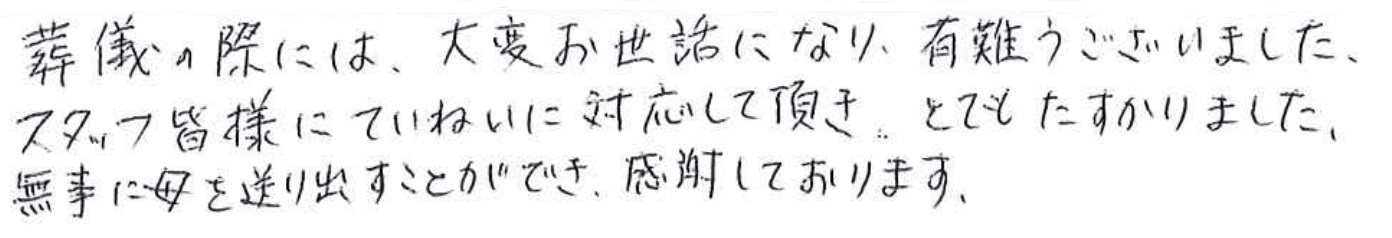 葬儀の際には、大変お世話になり、有難うございました、
スタッフ皆様にていねいに対応して頂き、とてもたすかりました、
無事に母を送り出すことができ、感謝しております、